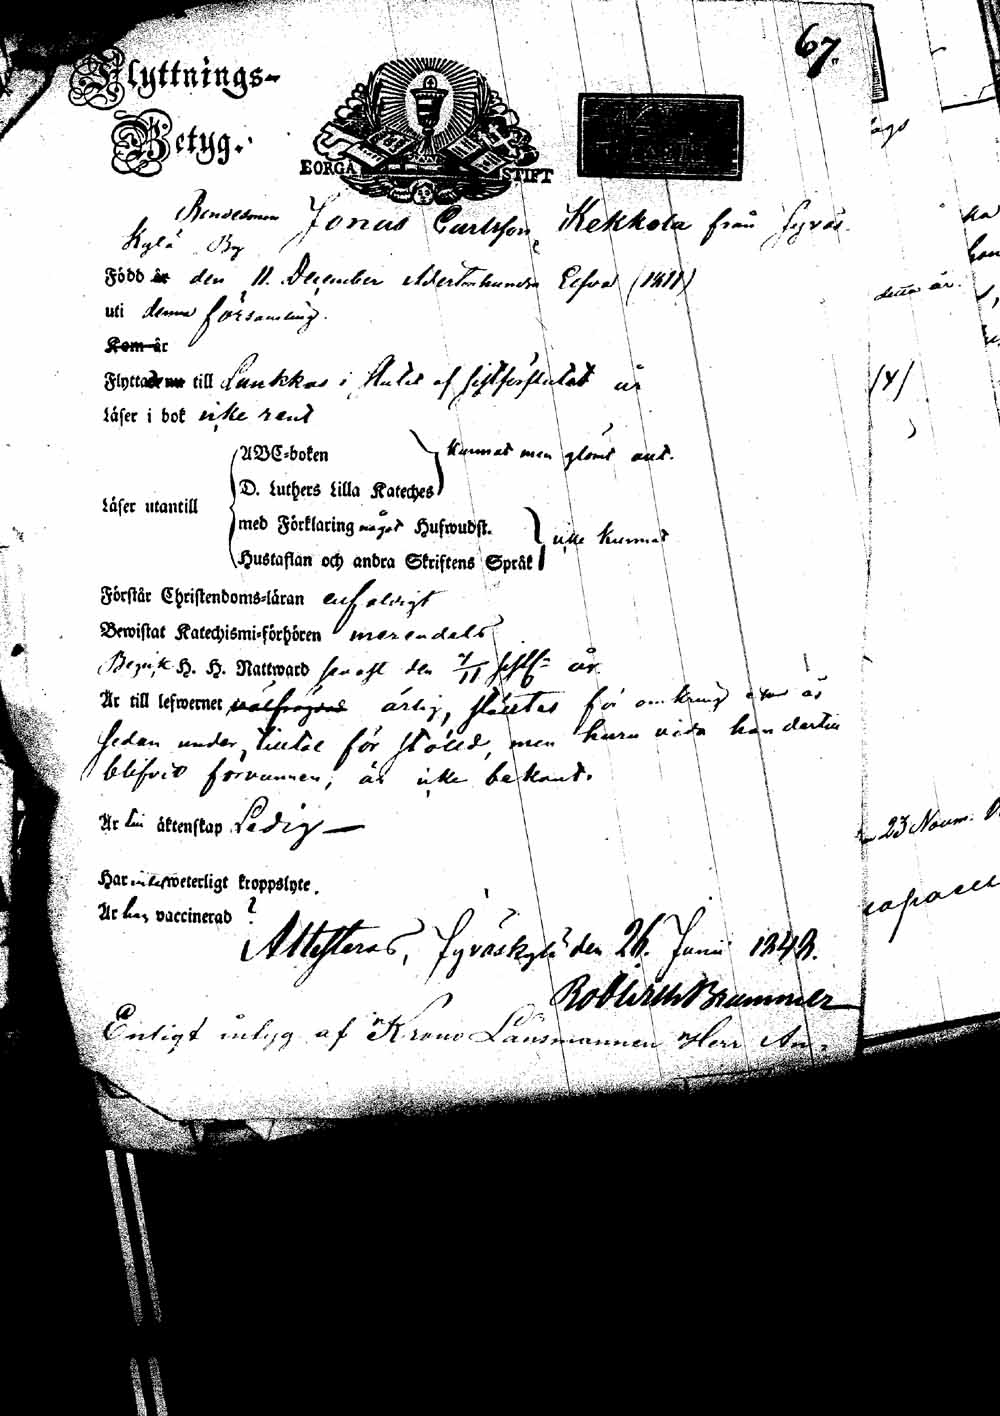 67.
Flyttnings-
Betyg.
BORGÅ STIFT
Bondesonen Jonas Carlsson Kekkola från Jyväs-
kylä By
Född år den 11. December Adertonhundra Elfva (1811)
uti denna församling.
Kom år
Flyttade nu till Laukkas i slutet af sistförflutet år
Läser i bok icke rent
Läser utantill
ABC-boken
D. Luthers Lilla Kateches
kunnat men glömt ant.
med Förklaring något Hufwudst.
Hustaflan och andra Skriftens Språk
icke kunnat
Förstår Christendoms-läran enfaldigt
Bewistat Katechismi-förhören merendels
Begick H. H. Nattward senast den 7/11 sistl. år
Är till lefwernet välfrägdad ärlig, för omkring år
sedan under tilltal för stöld, men huru vida han dertill
blifvit förvunnen, är icke bekant.
Är till äktenskap Ledig
Har intet weterligt kroppslyte.
Är han vaccinerad ?
Attesteras, Jyväskylä den 26. Junii 1842.
Rob Wilh Brummer
Enligt intyg af Krono Länsmannen Herr An-
detta år.
/4/
23 Novem.